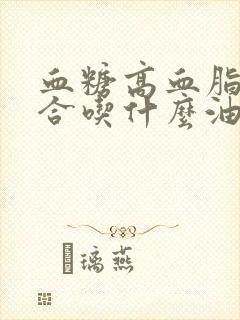 血糖高血脂
合喫什麼油
璃燕